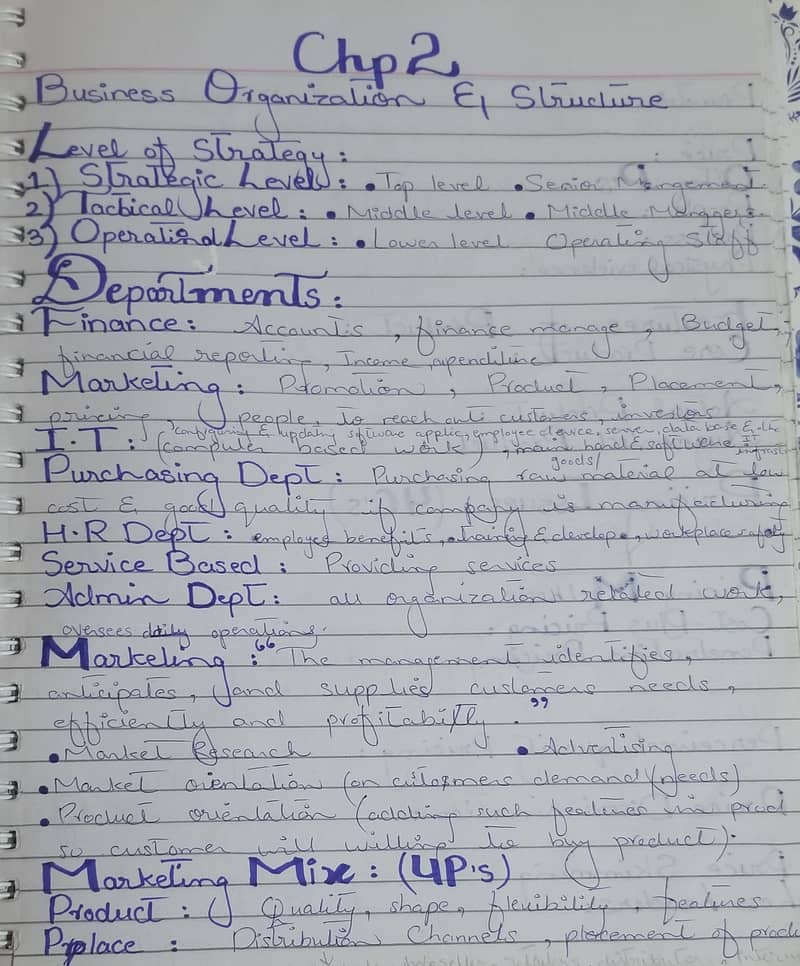 Chp 2
Business Organization & Structure
Level of Strategy:
1) Strategic Level: • Top level • Senior Mangement
2) Tactical Level: • Middle level • Middle Managers
3) Operational Level: • Lower level Operating Staff
Departments:
Finance: Accounts, finance manage, Budget,
financial reporting, Income, expenditure
Marketing: Promotion, Product, Placement,
pricing, people, to reach out customers, investors
configuring & updating software applic, employee device, server, data base & the
I.T: (computer based work), main hard & software IT
goods/
Purchasing Dept: Purchasing raw material at low
cost & good quality if company is manufacturing
H.R Dept: employes benefits, training & develope, workplace safety
Service Based: Providing services
Admin Dept: all organization related work,
oversees daily operations.
Marketing: "The management identifies,
anticipates, and supplied customers needs,
efficiently and profitabilly."
• Market Research • Advertising
• Market orientation (on customers demand (needs)
• Product orientation (adding such features in prod
so customer will willing to buy product).
Marketing Mix: (4P's)
Product: Quality, shape, flexibility, features
Place: Distribution Channels, placement of produ